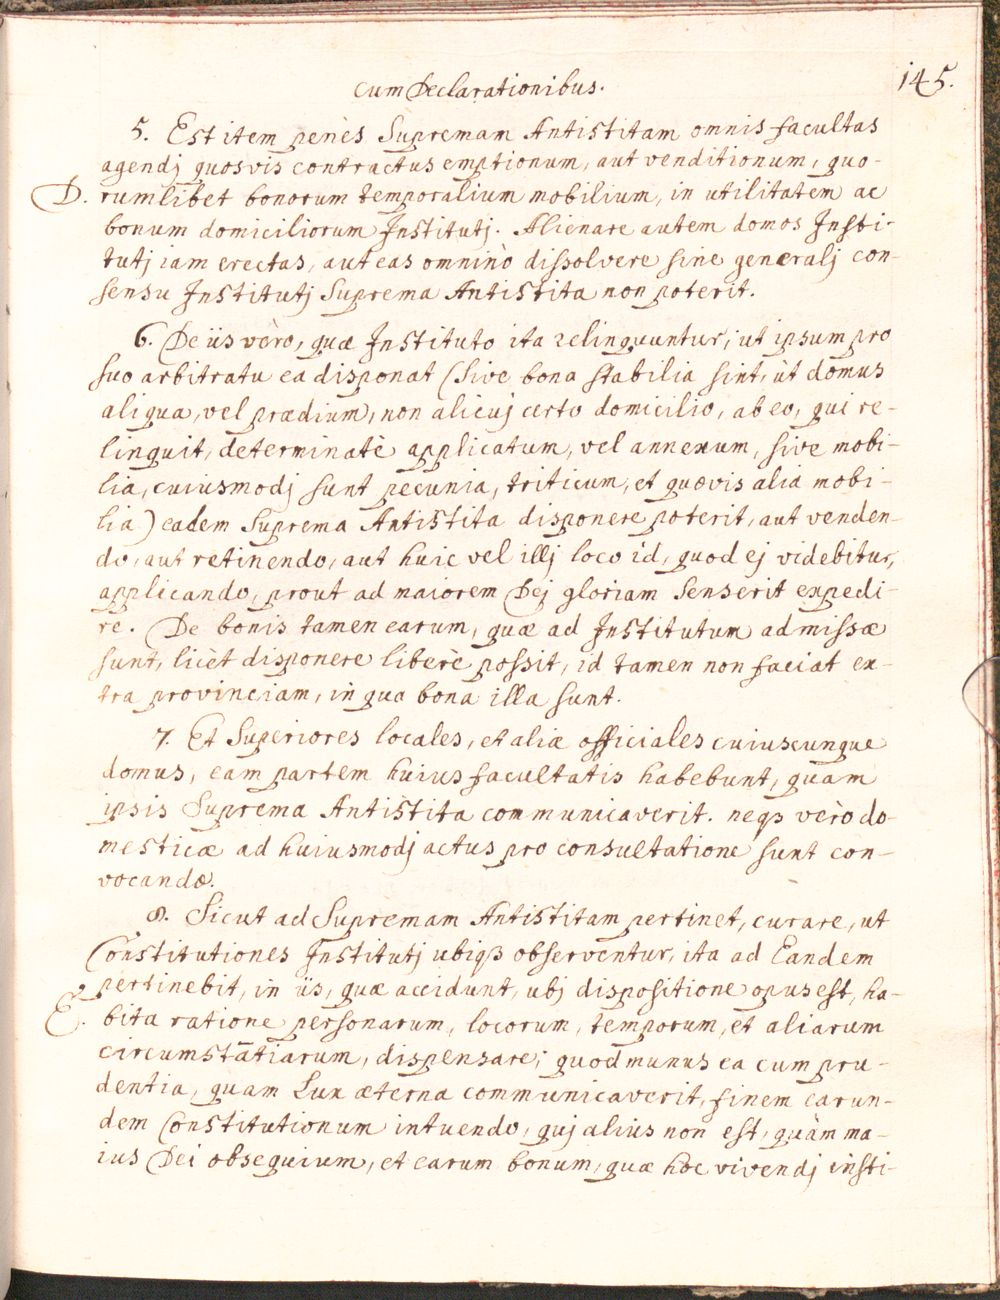 cum Declarationibus.
145.
5. Est item penès Supremam Antistitam omnis facultas
agendj quosvis contractus emptionum, aut venditionum, quo-
D. rumlibet bonorum temporalium mobilium, in utilitatem ac
bonum domiciliorum Institutj. Alienare autem domos Insti-
tutj iam erectas, aut eas omninò dissolvere sine generalj con-
sensu Institutj Suprema Antistita non poterit.
6. De iis vèro, quæ Instituto ita relinquuntur, ut ipsum pro
suo arbitratu ea disponat (sive bona stabilia sint, ùt domus
aliqua, vel prædium, non alicuj certo domicilio, ab eo, qui re-
linquit, determinatè applicatum, vel annexum, sive mobi-
lia, cuiusmodj sunt pecunia, triticum, et quævis alia mobi-
lia) eadem Suprema Antistita disponere poterit, aut venden-
do, aut retinendo, aut huic vel illj loco id, quod ej videbitur,
applicando, prout ad maiorem Dej gloriam Senserit expedi-
re. De bonis tamen earum, quæ ad Institutum admissæ
sunt, licèt disponere liberè possit, id tamen non faciat ex-
tra provinciam, in qua bona illa sunt.
7. Et Superiores locales, et aliæ officiales cuiuscunque
domus, eam partem huius facultatis habebunt, quam
ipsis Suprema Antistita communicaverit. neqз vèro do-
mesticæ ad huiusmodj actus pro consultatione sunt con-
vocandæ.
8. Sicut ad Supremam Antistitam pertinet, curare, ut
Constitutiones Institutj ubiqз observentur, ita ad Eandem
pertinebit, in iis, quæ accidunt, ubj dispositione opus est, ha-
E. bita ratione personarum, locorum, temporum, et aliarum
circumstãtiarum, dispensare; quod munus ea cum pru-
dentia, quam Lux æterna communicaverit, finem earun-
dem Constitutionum intuendo, quj alius non est, quàm ma-
ius Dei obsequium, et earum bonum, quæ hoc vivendj insti-